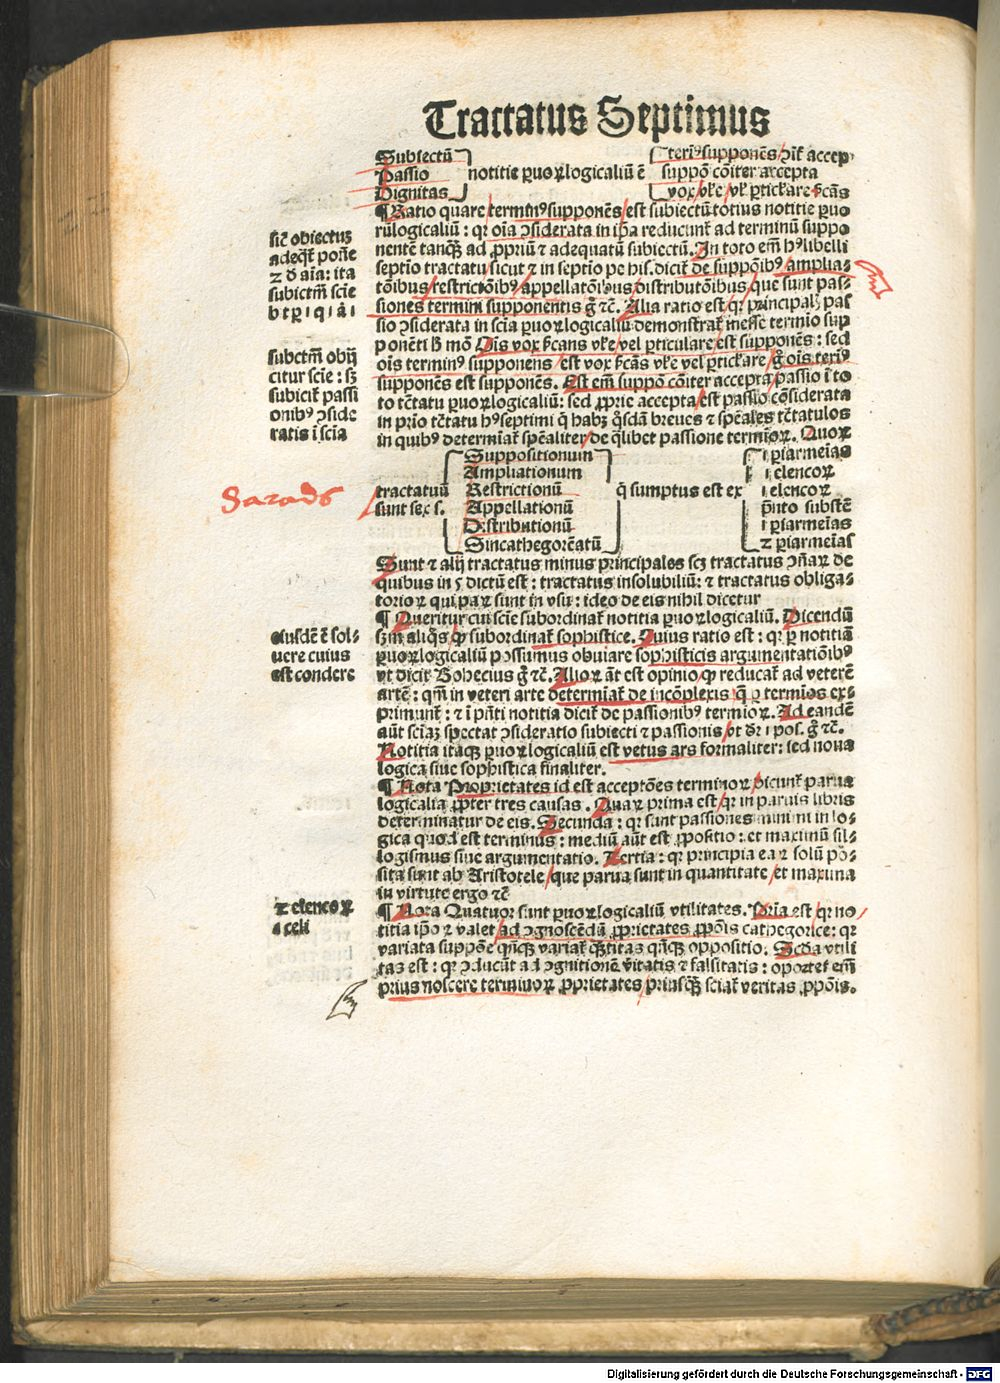 Tractatus Septimus
Subiectū
Passio
Dignitas
notitie ꝑuoꝝlogicaliū ē
suppō cōiter accepta
¶ Ratio quare terminꝰ supponēs est subiectū totius notitie ꝑuo
rūlogicaliū: qꝛ oīa ↄsiderata in ip̄a reducunt̄ ad terminū suppo
nentē tanq̄ꝫ ad ꝓpriū ⁊ adequatū subiectū. In toto em̄ hꝰ libelli
septio tractatu sicut ⁊ in septio pe his. dicit̄ de suppōibꝰ amplia⸗
tōibus restrictiōibꝰ appellatōibus distributōibus que sunt pas⸗
siones termini supponentis g̃ ⁊c̄. Alia ratio est qꝛ principal' pas
sio ↄsiderata in scīa ꝑuoꝝlogicaliū demonstrat̄ inesse termīo sup
ponēti h̄ mō Oīs vox sc̄ans vl'e vel ꝑticulare est supponēs: sed
oīs terminꝰ supponens est vox sc̄ans vl'e vel ꝑtic'are g̃ oīs terīꝰ
supponēs est supponēs. Est em̄ suppō cōiter accepta passio ī to
to tc̄tatu ꝑuoꝝlogicaliū: sed ꝓprie accepta est passio cōsiderata
in prīo tc̄tatu hꝰ septimi q̄ habꝫ q̄sdā breues ⁊ spēales tc̄tatulos
in quibꝰ determīat̄ spēaliter de q̄libet passione termīoꝝ. Quoꝝ
tractatuū
sunt sex s.
Suppositionum
Ampliationum
Restrictionū
Appellationū
Distributionū
Sincathegorēatū
q̄ sumptus est ex
i ꝑiarmeīas
i elencoꝝ
i elencoꝝ
p̄nto substē
i ꝑiarmeīas
⁊ ꝑiarmeīas
Sunt ⁊ alij tractatus minus principales scꝫ tractatus ↄn̄aꝝ de
quibus in 5 dictū est: tractatus insolubiliū: ⁊ tractatus obliga⸗
torioꝝ qui paꝝ sunt in vsu: ideo de eis nihil dicetur
¶ Queritur cui scīe subordinat̄ notitia ꝑuoꝝlogicaliū. Dicendū
scd̄m aliq̄s ꝙ subordinat̄ sophistice. Cuius ratio est: qꝛ ꝑ notitiā
ꝑuoꝝlogicaliū possumus obuiare sophisticis argumentatiōibꝰ
vt dicit Bohecius g̃ ⁊c̄. Alioꝝ āt est opinio ꝙ reducat̄ ad veterē
artē: qm̄ in veteri arte determiat̄ de incōplexis q̄ ꝑ termīos ex⸗
primunt̄: ⁊ ī p̄nti notitia dicit̄ de passionibꝰ termioꝝ. Ad eandē
aūt scīaꝫ spectat ↄsideratio subiecti ⁊ passionis vt dr̄ i pos. g̃ ⁊c̄.
Notitia itaqꝫ ꝑuoꝝlogicaliū est vetus ars formaliter: sed noua
logica siue sophistica finaliter.
¶ Nota Proprietates id est acceptōes terminoꝝ dicunt̄ parua
logicalia ꝓpter tres causas. Quaꝝ prima est qꝛ in paruis libris
determinatur de eis. Secunda: qꝛ sunt passiones minimi in lo⸗
gica quod est terminus: mediū aūt est ꝓpositio: et maximū sil⸗
logismus siue argumentatio. Tertia: qꝛ principia eaꝝ solū pō⸗
sita sunt ab Aristotele que parua sunt in quantitate et maxima
in virtute ergo ⁊c̄
¶ Nota Quatuor sunt ꝑuoꝝlogicaliū vtilitates. Prīa est qꝛ no
titia ip̄oꝝ valet ad ↄgnoscēdū ꝓprietates ꝓpōis cathegorice: qꝛ
variata suppōe qn̄qꝫ variat̄ q̄ꝫtitas qn̄qꝫ oppositio. Scd̄a vtili
tas est: qꝛ ↄducūt ad ↄgnitionē v̄itatis ⁊ falsitatis: oportet em̄
prius noscere terminoꝝ ꝓprietates priusq̄ꝫ sciat̄ veritas ꝓpōis.
sic̄ obiectuꝫ
adeq̄t̄ ponīe
⁊ d̄ aīa: ita
subiectm̄ scīe
subctm̄ obij
citur scīe: sꝫ
subicit̄ passi
onibꝰ ↄside
ratis ī scīa
eiusdē ē sol⸗
uere cuius
est condere
⁊ elencoꝝ
i celi